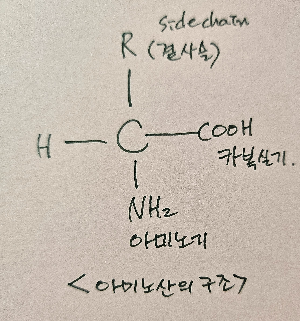 sidechain
R (곁사슬)
H C COOH
카복실기.
NH2
아미노기
<아미노산의 구조>